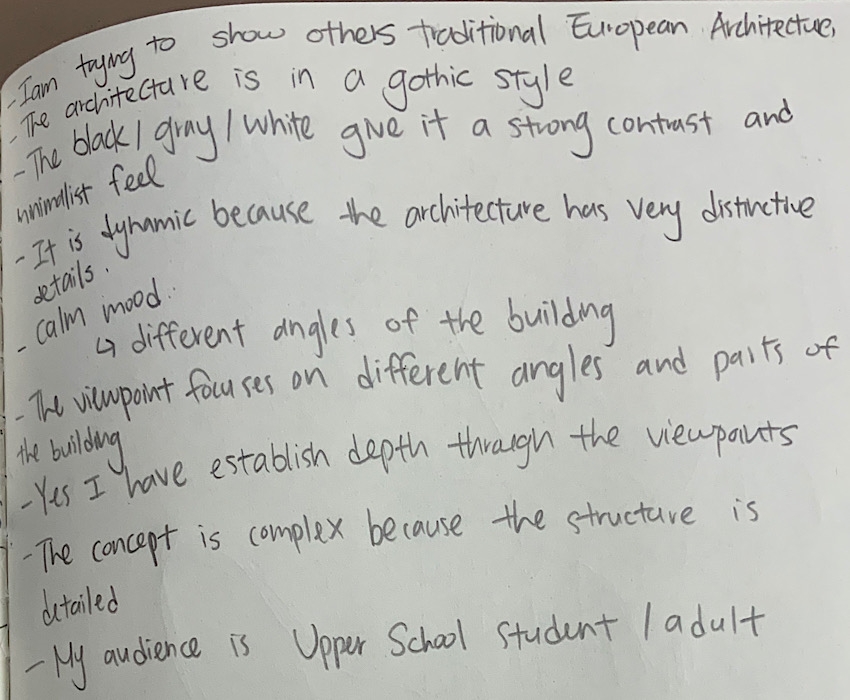 - I am trying to show others traditional European Architecture,
- The architecture is in a gothic style
- The black / gray / white give it a strong contrast and
minimalist feel
- It is dynamic because the architecture has very distinctive
details.
- calm mood.
↳ different angles of the building
- The viewpoint focuses on different angles and parts of
the building
- Yes I have establish depth through the viewpoints
- The concept is complex because the structure is
detailed
- My audience is Upper School student / adult